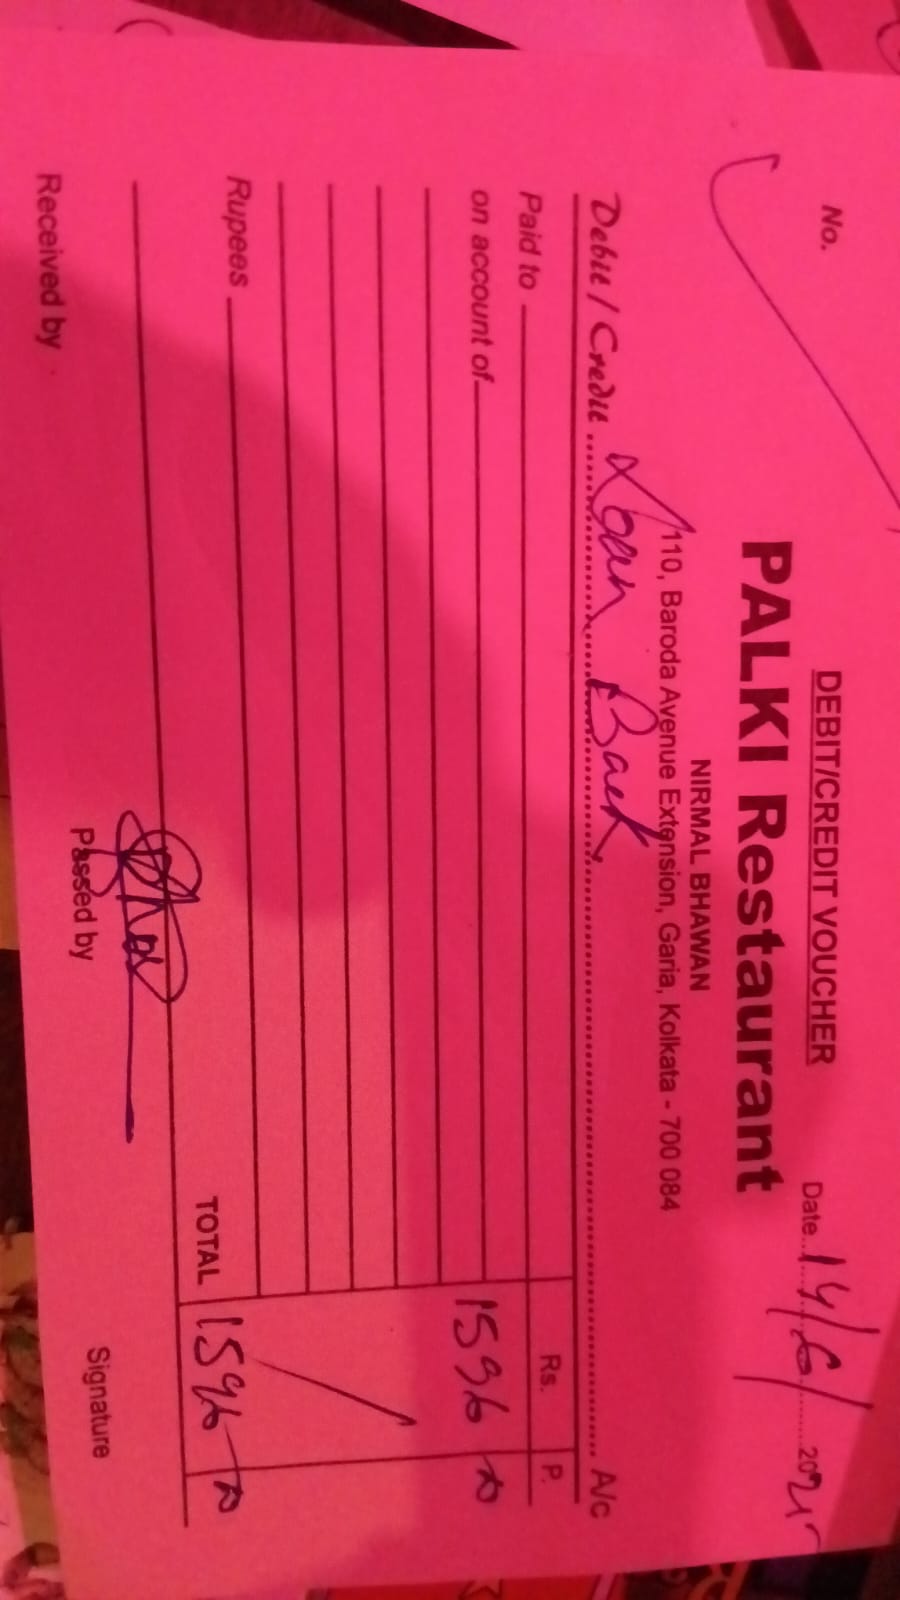 No.
DEBIT/CREDIT VOUCHER
Date 14/6/2025
PALKI Restaurant
NIRMAL BHAWAN
110, Baroda Avenue Extension, Garia, Kolkata - 700 084
Debit / Credit Loan Back A/c
Paid to Rs. P.
on account of 1596 00
Rupees TOTAL 1596 00
Received by Passed by Signature